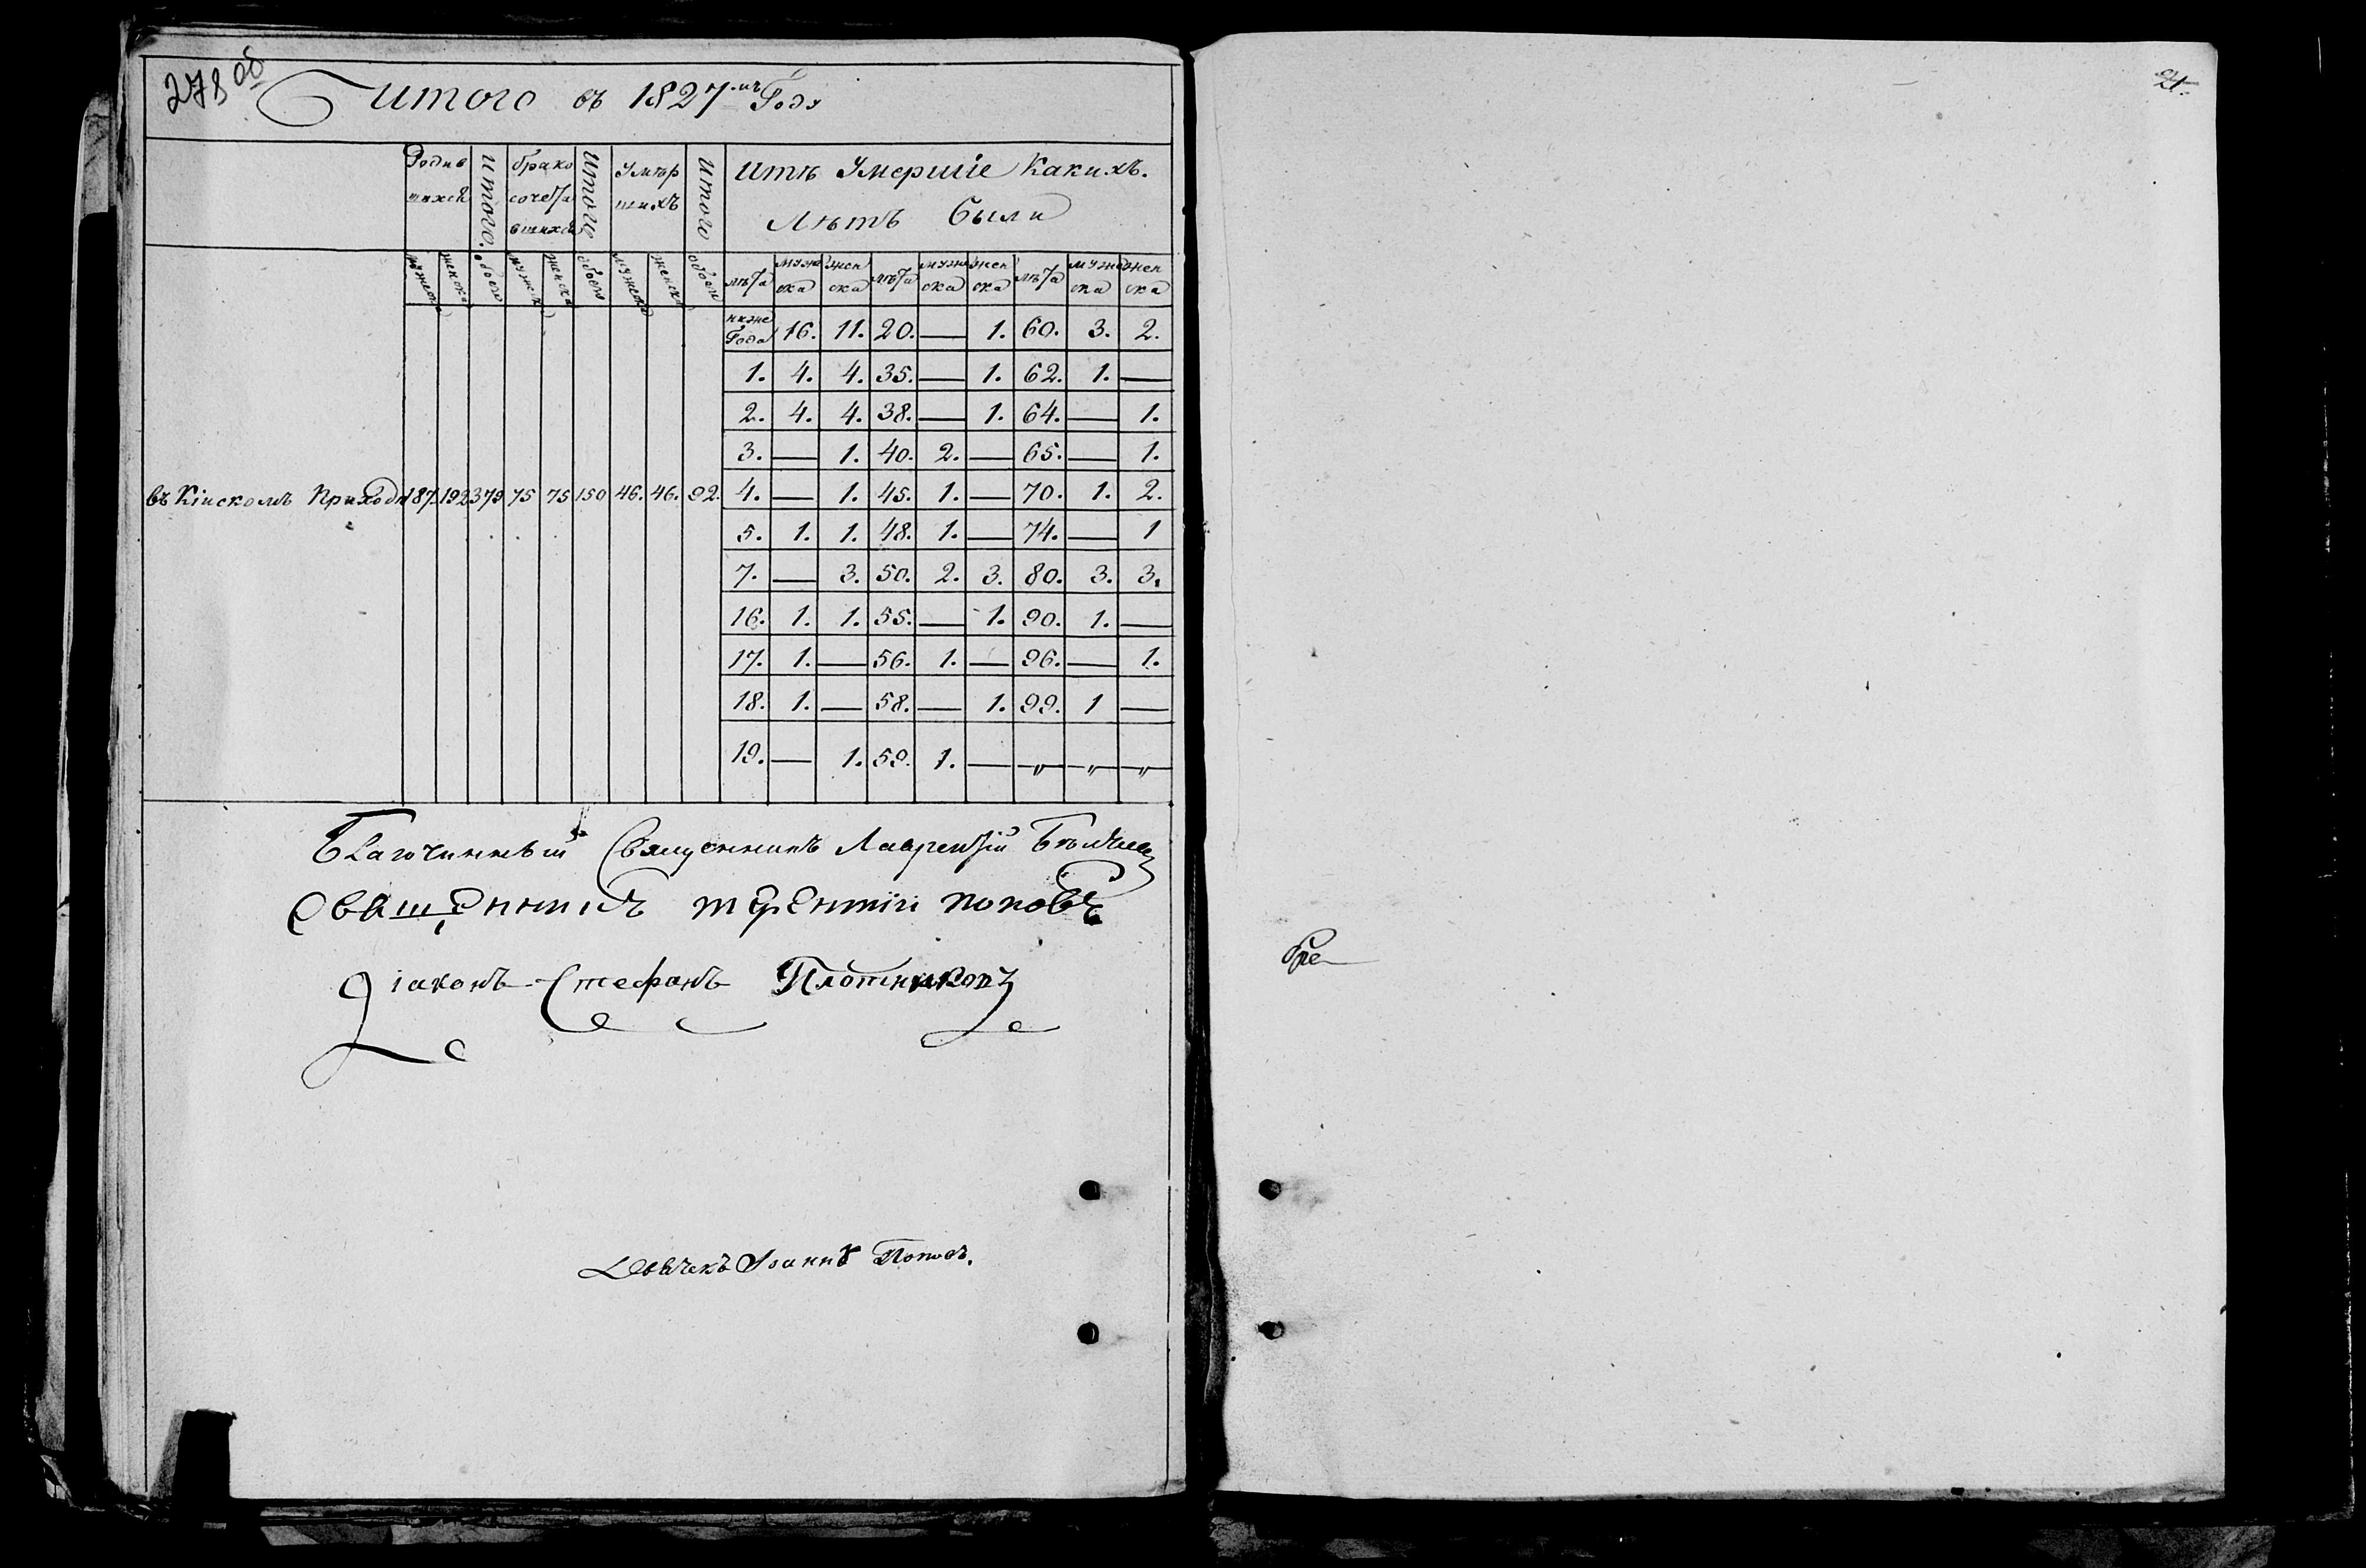 278 об
итого въ 1827.мъ Годѣ
Родив
шихся
итого.
брако
сочета
вшихся
итого
Умѣр
шихъ
итого
итѣ Умершіе Какихъ.
Лѣтъ были
мужска женска обоего мужска женска обоего мужска женска обоего
лѣта мужска женска лѣта мужска женска лѣта мужска женска
ниже Года 16. 11. 20. — 1. 60. 3. 2.
1. 4. 4. 35. — 1. 62. 1. —
2. 4. 4. 38. — 1. 64. — 1.
3. — 1. 40. 2. — 65. — 1.
въ Кіискомъ Приходѣ 187. 192 379 75 75 150 46. 46. 92. 4. — 1. 45. 1. — 70. 1. 2.
5. 1. 1. 48. 1. — 74. — 1
7. — 3. 50. 2. 3. 80. 3. 3.
16. 1. 1. 55. — 1. 90. 1. —
17. 1. — 56. 1. — 96. — 1.
18. 1. — 58. — 1. 99. 1 —
19. — 1. 59. 1. — „ „ „
Благочинный Священникъ Лаврентій
Священникъ терентіи поповъ
Діаконъ Стефанъ Плотниковъ
Іоаннъ Поповъ.